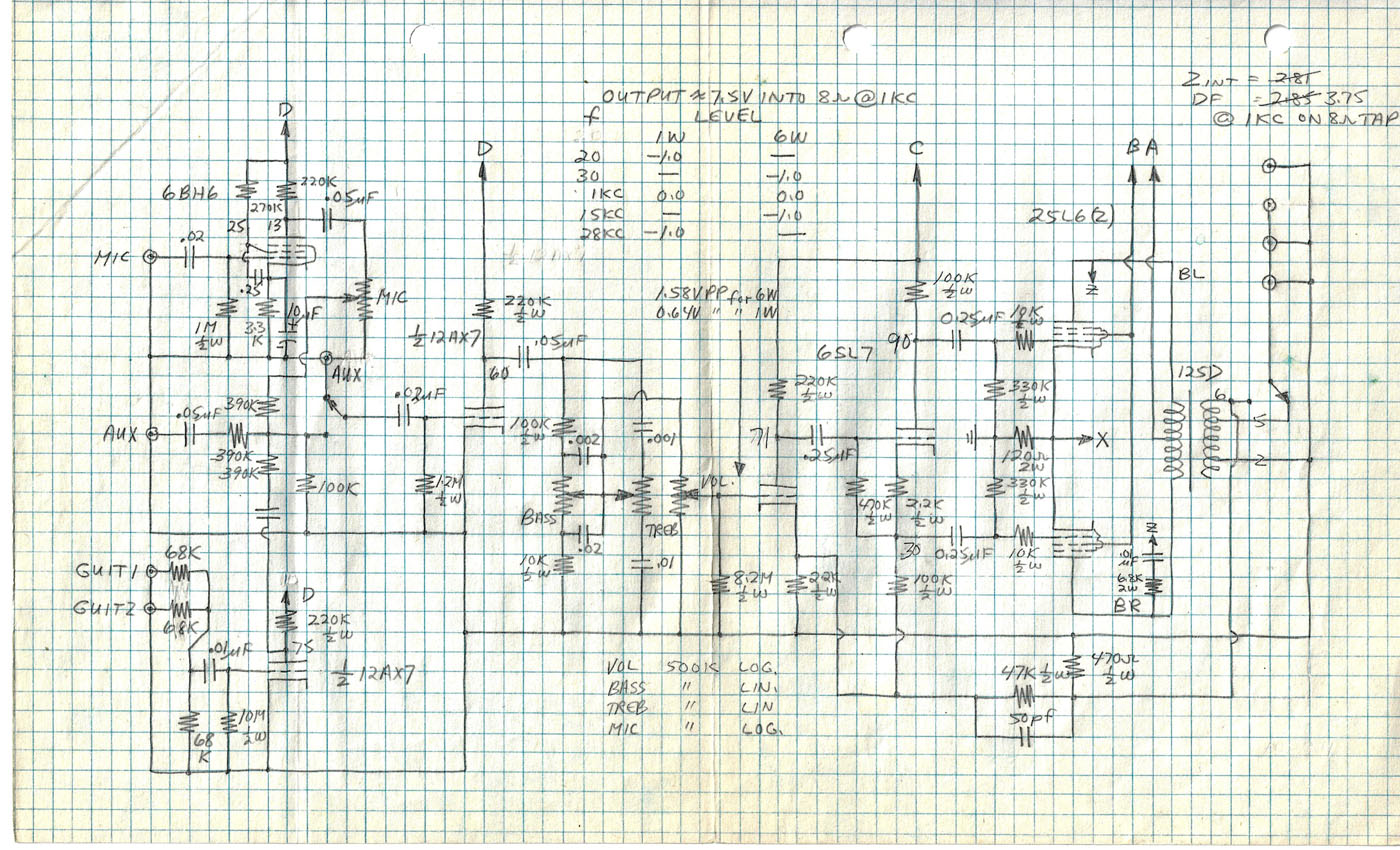 Z INT = 2.85
DF = 2.85 3.75
@ 1KC ON 8Ω TAP
OUTPUT ≈ 7.5V INTO 8Ω @ 1KC
f LEVEL
1W 6W
20 -1.0 —
30 — -1.0
1KC 0.0 0.0
15KC — -1.0
28KC -1.0 —
1.58VPP for 6W
0.64V " " 1W
D
6BH6
220K
270K
.05μF
25
13
MIC
.02
.25
10μF
MIC
1M
½W
3.3
K
AUX
AUX
.05μF
390K
390K
390K
100K
.02μF
1.2M
½W
D
220K
½W
½12AX7
.05μF
60
100K
½W
.002
.001
BASS
TREB
VOL.
.02
.01
10K
½W
GUIT1
68K
GUIT2
68K
D
220K
½W
75
.01μF
½12AX7
68
K
10M
½W
VOL 500K LOG.
BASS " LIN.
TREB " LIN
MIC " LOG.
C
100K
½W
6SL7
90
0.25μF
10K
½W
220K
½W
71
.25μF
470K
½W
2.2K
½W
8.2M
½W
2.2K
½W
30
0.25μF
100K
½W
330K
½W
120Ω
2W
X
330K
½W
10K
½W
B A
25L6(2)
Z
BL
125D
6
5
2
Z
.01
μF
6.8K
2W
BR
47K ½W
470Ω
½W
50pf